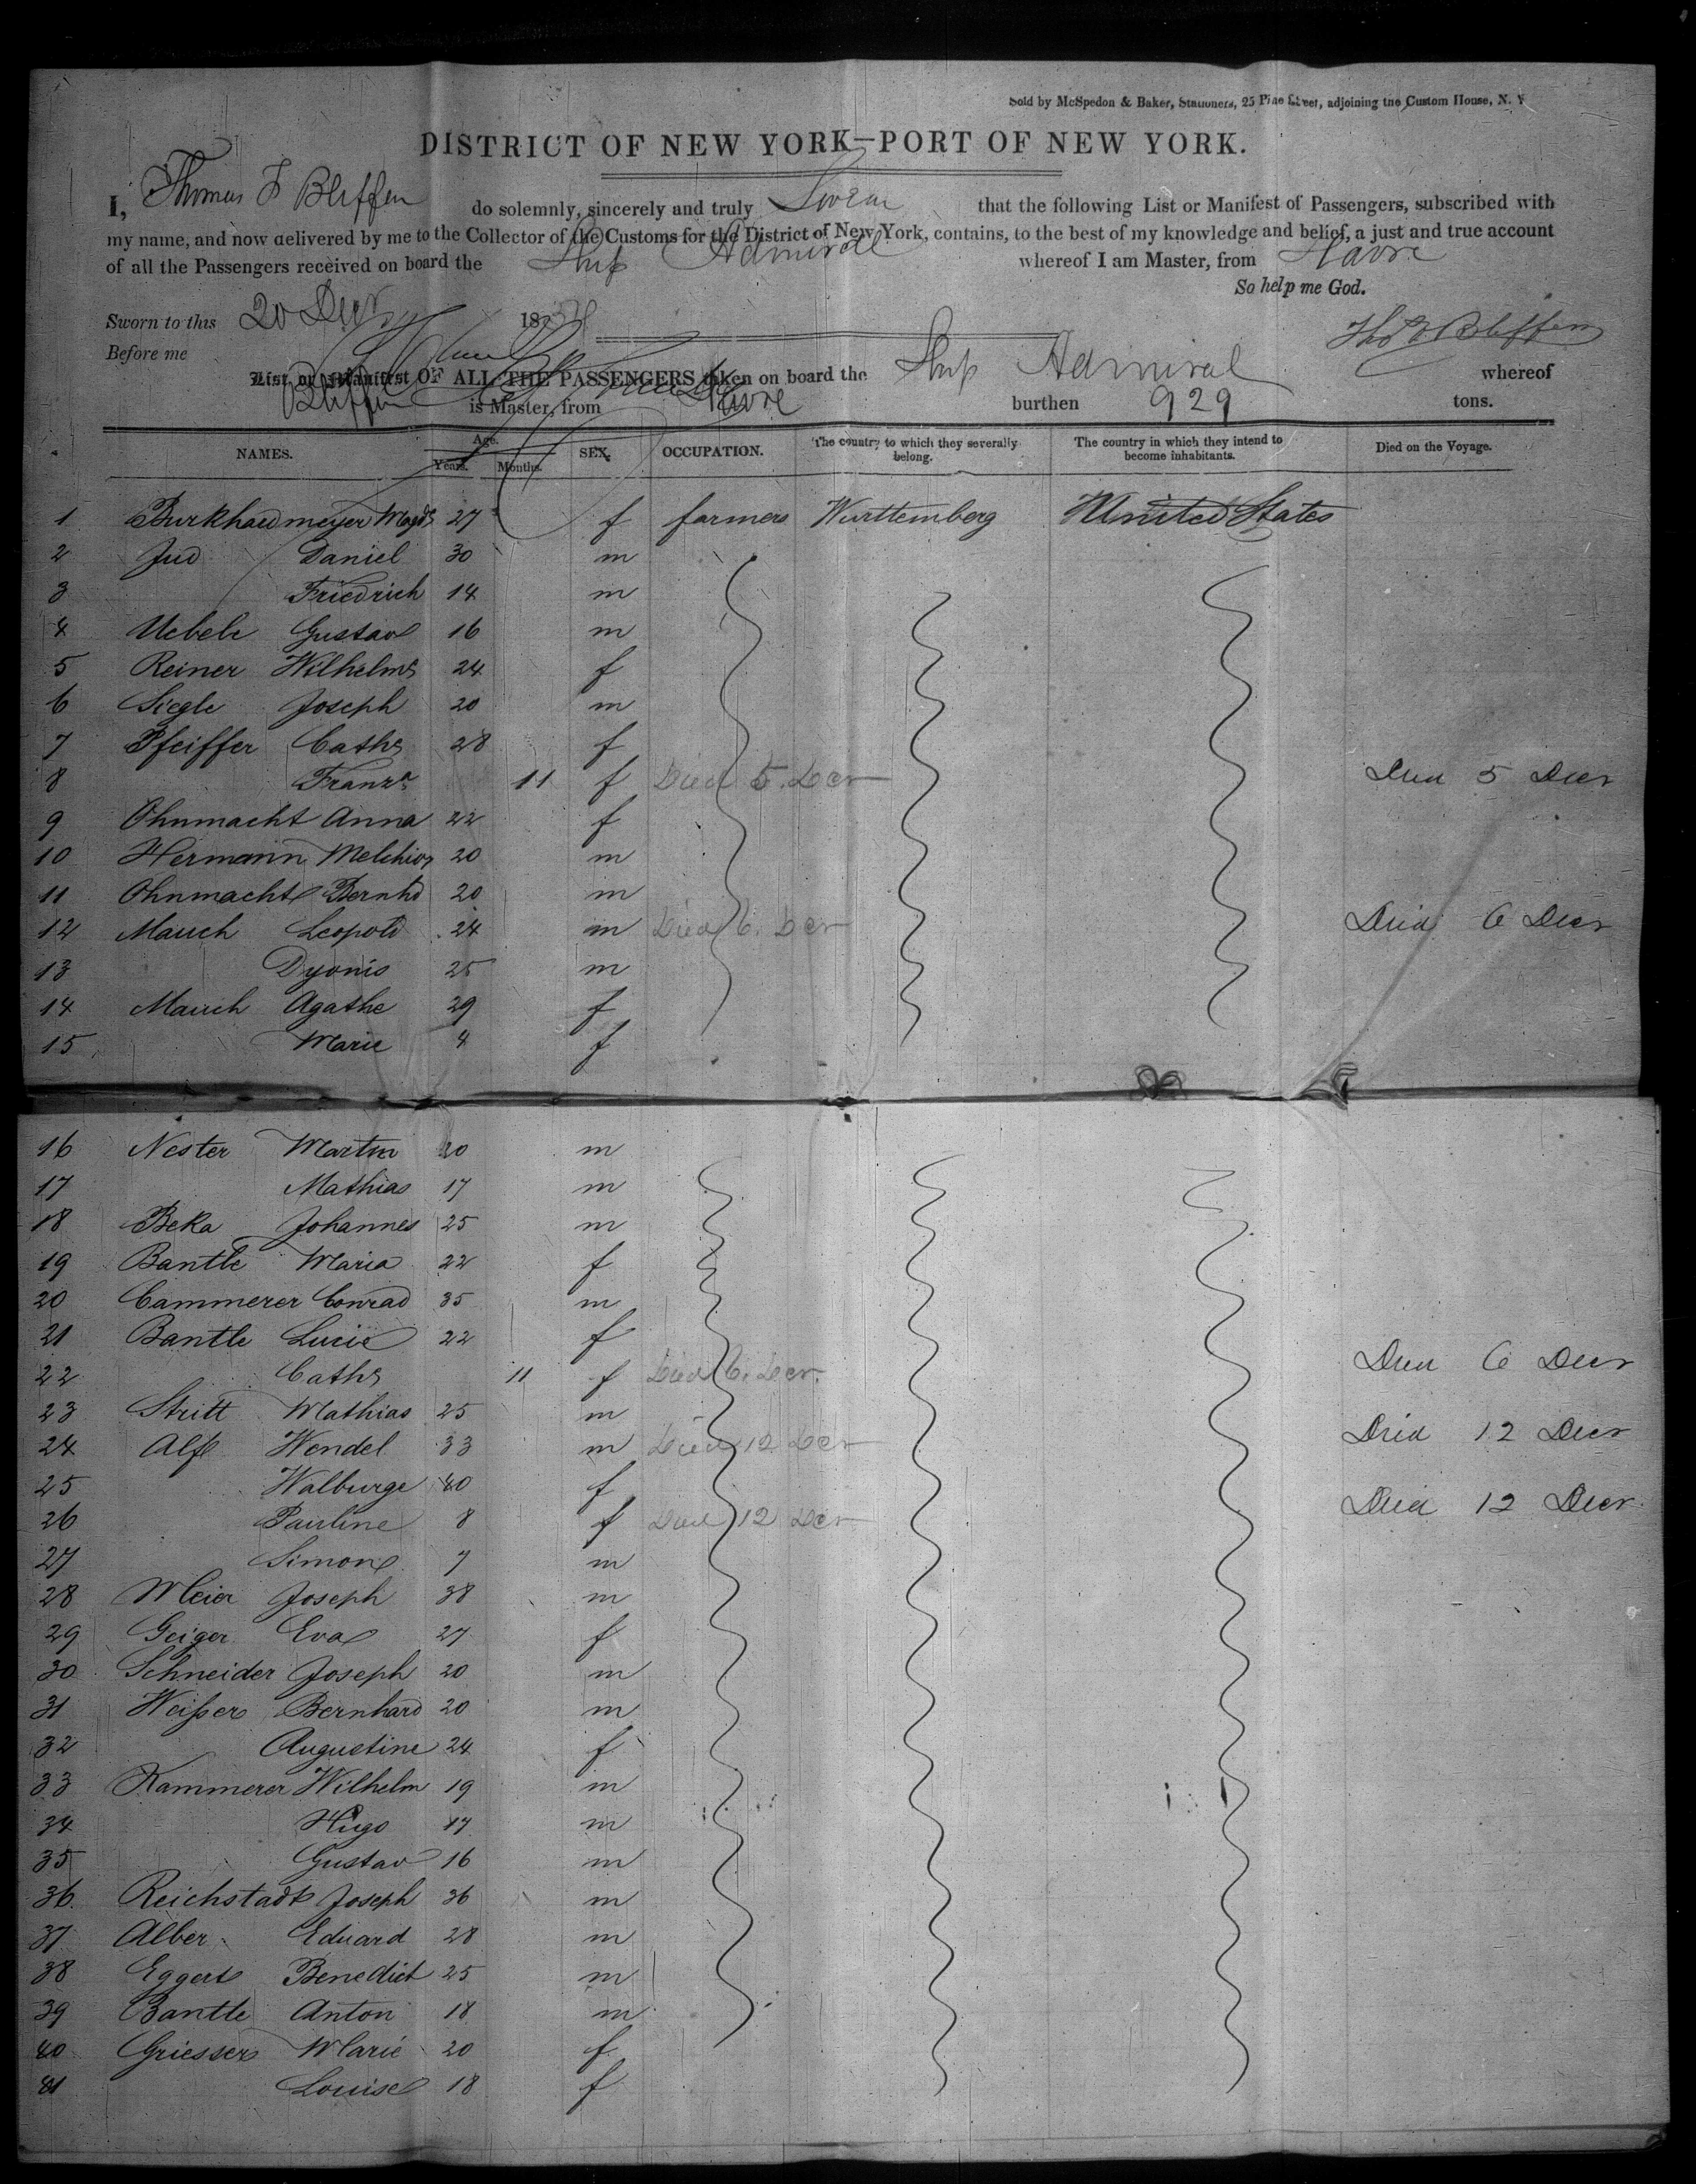 Sold by McSpedon & Baker, Stationers, 25 Pine Street, adjoining the Custom House, N. Y
DISTRICT OF NEW YORK—PORT OF NEW YORK.
I, Thomas F Bliffen do solemnly, sincerely and truly Swear that the following List or Manifest of Passengers, subscribed with
my name, and now delivered by me to the Collector of the Customs for the District of New York, contains, to the best of my knowledge and belief, a just and true account
of all the Passengers received on board the Ship Admiral whereof I am Master, from Havre
So help me God.
Sworn to this 20 Decr 18
Before me
List or Manifest OF ALL THE PASSENGERS taken on board the Ship Admiral whereof
Bliffen is Master, from Havre burthen 929 tons.
NAMES. Age. Years. Months. SEX. OCCUPATION. The country to which they severally belong. The country in which they intend to become inhabitants. Died on the Voyage.
1 Burkhardmeyer Magd. 27 f farmers Wurttemberg United States
2 Jud Daniel 30 m
3 Friedrich 14 m
4 Uebele Gustav 16 m
5 Reiner Wilhelme 24 f
6 Siegle Joseph 20 m
7 Pfeiffer Cathe 28 f
8 Franza 11 f Died 5. Decr Died 5 Decr
9 Ohnmacht Anna 22 f
10 Hermann Melchior 20 m
11 Ohnmacht Bernhd 20 m
12 Mauch Leopold 24 m Died 6. Decr Died 6 Decr
13 Dyonis 25 m
14 Mauch Agathe 29 f
15 Marie 4 f
16 Nester Martin 20 m
17 Mathias 17 m
18 Beka Johannes 25 m
19 Bantle Maria 22 f
20 Cammerer Conrad 35 m
21 Bantle Lucie 22 f
22 Cathe 11 f Died 6. Decr. Died 6 Decr
23 Stritt Mathias 25 m
24 Alf Wendel 33 m Died 12 Decr Died 12 Decr
25 Walburge 40 f
26 Pauline 8 f Died 12 Decr Died 12 Decr
27 Simon 7 m
28 Meier Joseph 38 m
29 Geiger Eva 27 f
30 Schneider Joseph 20 m
31 Weißer Bernhard 20 m
32 Augustine 24 f
33 Kammerer Wilhelm 19 m
34 Hugo 17 m
35 Gustav 16 m
36 Reichstadt Joseph 36 m
37 Alber Eduard 28 m
38 Eggert Benedict 25 m
39 Bantle Anton 18 m
40 Griesser Marie 20 f
41 Louise 18 f